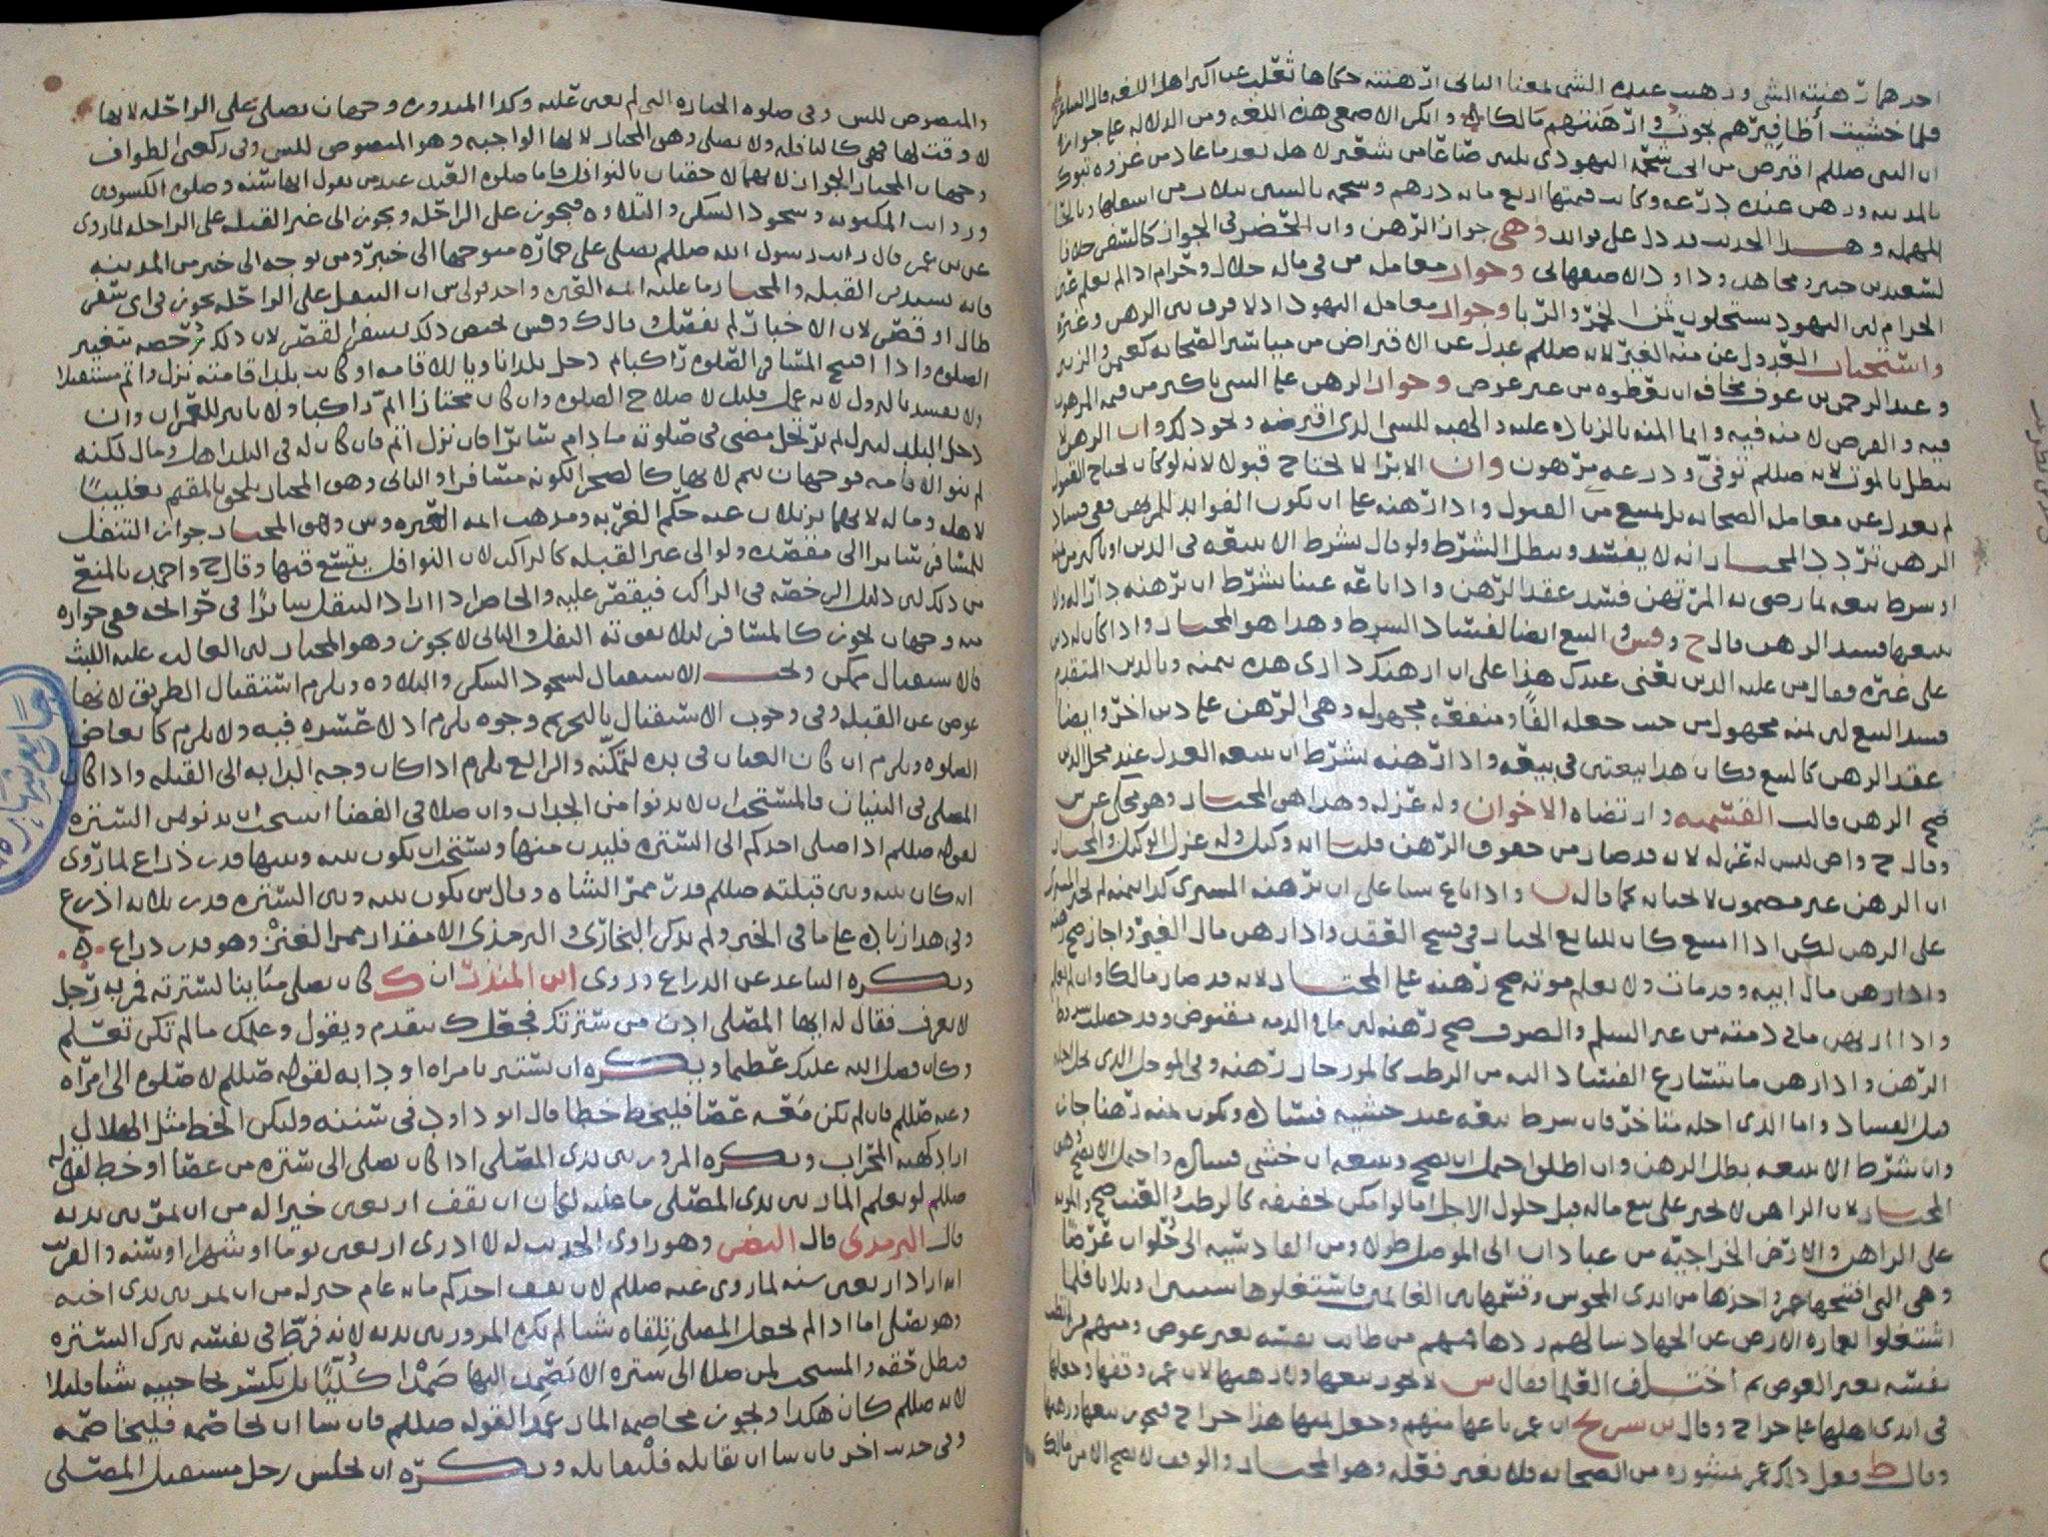 احدهما رهنته الشي ورهنت عنده الشي لمعنا الثاني ارهنته حكاها ثعلب عن اكثر اهل اللغه قال الشاعر
فلما خشيت أظافيرهم نجوت وارهنتهم مالكا وانكر الاصمعي هذه اللغه ومن الدلاله على جوازه
ان النبي صللم اقترض من ابي شحمة اليهودي ثلثين صاعا من شعير لاهله بعد ما عاد من غزوه تبوك
بالمدينه ورهن عنده درعه وكانت قيمتها اربع مايه درهم
المهمله وهذا الحديث يدل على فوايد وهي جواز الرهن وان الحضر في الجواز كالسفر خلافا
لسعيد بن جبير ومجاهد وداود الاصفهاني وجواز معامله من في ماله حلال وحرام اذا لم يعلم عين
الحرام لان اليهود يستحلون ثمن الخمر والربا وجواز معامله اليهود اذ لا فرق بين الرهن وغيره
واستحباب العدول عن منه الغير لانه صللم عدل عن الاقتراض من مياسير الصحابه كعثمن والزبير
وعبد الرحمن بن عوف مخافه ان يعطوه من غير عوض وجواز الرهن على الشي باكثر من قيمه المرهون
فيه والقرض لا منه فيه وانما المنه بالزياده عليه والهبه للشي الذي اقترضه ونحو ذلك وان الرهن لا
يبطل بالموت لانه صللم توفي ودرعه مرهون وان الابرا لا يحتاج قبولا لانه لو كان يحتاج القبول
لم يعدل عن معامله الصحابه بل يمتنع من القبول واذا ارهنه على ان يكون الفوايد للمرتهن ففي فساد
الرهن تردد المختار انه لا يفسد ويبطل الشرط ولو قال بشرط الا يبيعه في الدين او باكثر من ثمنه
او بشرط بيعه بما رضي به المرتهن فسد عقد الرهن واذا باعه عينا بشرط ان يرهنه داره او
بيعها فسد الرهن قال ح وقس والبيع ايضا لفساد الشرط وهذا هو المختار واذا كان له دين
على غيره فقال من عليه الدين بعني عبدك هذا على ان ارهنك داري هذه بثمنه وبالدين المتقدم
فسد البيع لان ثمنه مجهول من حيث جعله الفا ومنفعه مجهوله وهي الرهن على دين اخر وايضا
عقد الرهن كالبيع وكان هذا بيعتين في بيعه واذا ارهنه بشرط ان يبيعه العدل عند محل الدين
صح الرهن قالت القسميه وارتضاه الاخوان وله عزله وهذا هو المختار وهو محكي عن س
وقال ح واص ليس له عزله لانه قد صار من حقوق الرهن قلنا انه وكيل وله عزل الوكيل والمختار
ان الرهن غير مضمون لا لجنايه كما قاله ن واذا باع شيا على ان يرهنه المشتري كذا بثمنه لم يجبر المشتري
على الرهن لكن اذا امتنع كان للبايع الخيار في فسخ العقد واذا رهن مال الغير واجاز صح رهنه
واذا رهن مال ابيه وقد مات ولا يعلم موته صح رهنه على المختار لانه قد صار مالكا وان لم يعلم
واذا ارتهن ما في ذمته من غير السلم والصرف صح رهنه لان ما في الذمه مقبوض وقد حصلت شروط
الرهن واذا رهن ما يتسارع الفساد اليه من الرطب كالموز جاز رهنه وفي الموجل الذي يحل اجله
قبل الفساد واما الذي اجله متاخر فان شرط بيعه عند خشيه فساده ويكون ثمنه رهنا جاز
وان شرط الا يبيعه بطل الرهن وان اطلقوا احتمل ان يصح ويبيعه ان خشي فساده واحتمل الا يصح وهو
المختار لان الراهن لا يجبر على بيع ماله قبل حلول الاجل اما لو امكن تجفيفه كالرطب والعنب صح
على الراهن والارض الخراجيه من عبادان الى الموصل طولا ومن القادسيه الى حلوان عرضا
وهي التي افتتحها عمر واخذها من ايدي المجوس وقسمها بين الغانمين فاستغلوها سنتين او ثلاثا فلما
اشتغلوا بعماره الارض عن الجهاد سالهم ردها فمنهم من طابت نفسه بغير عوض ومنهم من لم تطب
نفسه بغير العوض ثم اختلف العلما فقال س لا يجوز بيعها ولا رهنها لان عمر وقفها وجعلها
في ايدي اهلها على خراج وقال بن سريج ان عمر باعها منهم وجعل ثمنها هذا خراج فيجوز بيعها ورهنها
وقال ط فعل ذلك عمر بمشوره من الصحابه فلا يغير فعله وهو المختار والوقف لا يصح الا من مالك
والمنصوص للس وفي صلوه الجنازه التي لم يعين عليه وكذا المنذوره وجهان يصلي على الراحله لانها
لا وقت لها فهي كالنافله ولا يصلي وهو المختار لانها الواجبه وهو المنصوص للس وفي ركعتي الطواف
وجهان المختار الجواز لانهما لاحقتان بالنوافل فاما صلوه العيد عند من يقول انها سنه وصلوه الكسوف
ورواتب المكتوبه وسجود الشكر والتلاوه فيجوز على الراحله ويجوز الى غير القبله على الراحله لما روي
عن بن عمر قال رايت رسول الله صللم يصلي على حماره متوجها الى خيبر ومن توجه الى خيبر من المدينه
فانه يستدبر القبله والمختار ما عليه ايمه العتره واحد قولي س ان التنفل على الراحله يجوز في اي سفر
طال او قصر لان الاخبار لم تفصل وقال ك وقس يختص ذلك بسفر القصر لان ذلك رخصه تغيير
الصلوه واذا افتتح المسافر الصلوه راكبا ثم دخل بلدا ناويا للاقامه او كانت بلد اقامته نزل واتم مستقبلا
ولا تفسد بالنزول لانه عمل قليل لاصلاح الصلوه وان كان مجتازا اتم راكبا ولا تاثير للعمران وان
دخل البلد لينزل ثم يرتحل مضى في صلوته ما دام سائرا فان نزل اتم فان كان له في البلد اهل ومال لكنه
لم ينو الاقامه فوجهان يتم لانها كالصحرا لكونه مسافرا والثاني وهو المختار يلحق بالمقيم تغليبا
لاهله وماله لانهما يزيلان عنه حكم الغربه ومذهب ايمه العتره وس وهو المختار جواز التنفل
للمسافر سائرا الى مقصده ولو الى غير القبله كالراكب لان النوافل يتسع فيها وقال ح واحمد بالمنع
من ذلك لان دليل الرخصه في الراكب فيقصر عليه والحاضر اذا اراد التنفل سائرا في حوائجه ففي جوازه
منه وجهان يجوز كالمسافر ليلا يفوته النفل والثاني لا يجوز وهو المختار لان الغالب عليه اللبث
فالاستقبال ممكن ويجب الاستقبال لسجود الشكر والتلاوه ويلزم استقبال الطريق لانها
عوض عن القبله وفي وجوب الاستقبال بالتحريم وجوه يلزم اذ لا عسره فيه ولا يلزم كابعاض
الصلوه ويلزم ان كان العنان في يده لتمكنه والرابع يلزم اذا كان وجه الدابه الى القبله واذا كان
المصلي في البنيان فالمستحب ان يدنوا من الجدار وان صلا في الفضا استحب ان يدنو من السترة
لقوله صللم اذا صلى احدكم الى السترة فليدن منها ويستحب ان يكون بينه وبينها قدر ذراع لما روي
انه كان بينه وبين قبلته صللم قدر ممر الشاه وقال س يكون بينه وبين السترة قدر ثلاثه اذرع
وفي هذا زياده على ما في الخبر ولم يذكر البخاري والترمذي الا مقدار ممر العنز وهو قدر ذراع ۵
ويكره التباعد عن الذراع وروى ابن المنذر ان ك كان يصلي متباينا لسترته فمر به رجل
لا يعرفه فقال له ايها المصلي ادن من سترتك فجعل ك يتقدم ويقول وعلمك ما لم تكن تعلم
وكان فضل الله عليك عظيما ويكره ان يستتر بامراه او دابه لقوله صللم لا صلوه الى امراه
وعنه صللم فان لم يكن معه عصا فليخط خطا قال ابو داود في سننه وليكن الخط مثل الهلال
اراد كهيئه المحراب ويكره المرور بين يدي المصلي اذا كان يصلي الى سترة من عصا او خط لقوله
صللم لو يعلم المار بين يدي المصلي ما عليه لكان ان يقف اربعين خيرا له من ان يمر بين يديه
قال الترمذي قال النضر وهو راوي الحديث له لا ادري اربعين يوما او شهرا او سنه والقريب
انه اراد اربعين سنه لما روي عنه صللم لان يقف احدكم مايه عام خير له من ان يمر بين يدي اخيه
وهو يصلي اما اذا لم يجعل المصلي تلقاه شيا لم يكره المرور بين يديه لانه فرط في نفسه بترك السترة
فبطل حقه والمستحب لمن صلا الى سترة الا يصمد اليها صمدا كليا بل يكسر حاجبيه شيا قليلا
لانه صللم كان هكذا ويجوز مخاصمه المار عمدا لقوله صللم فان شا ان يخاصمه فليخاصمه
وفي حديث اخر فان شا ان يقاتله فليقاتله ويكره ان يجلس رجل مستقبل المصلي